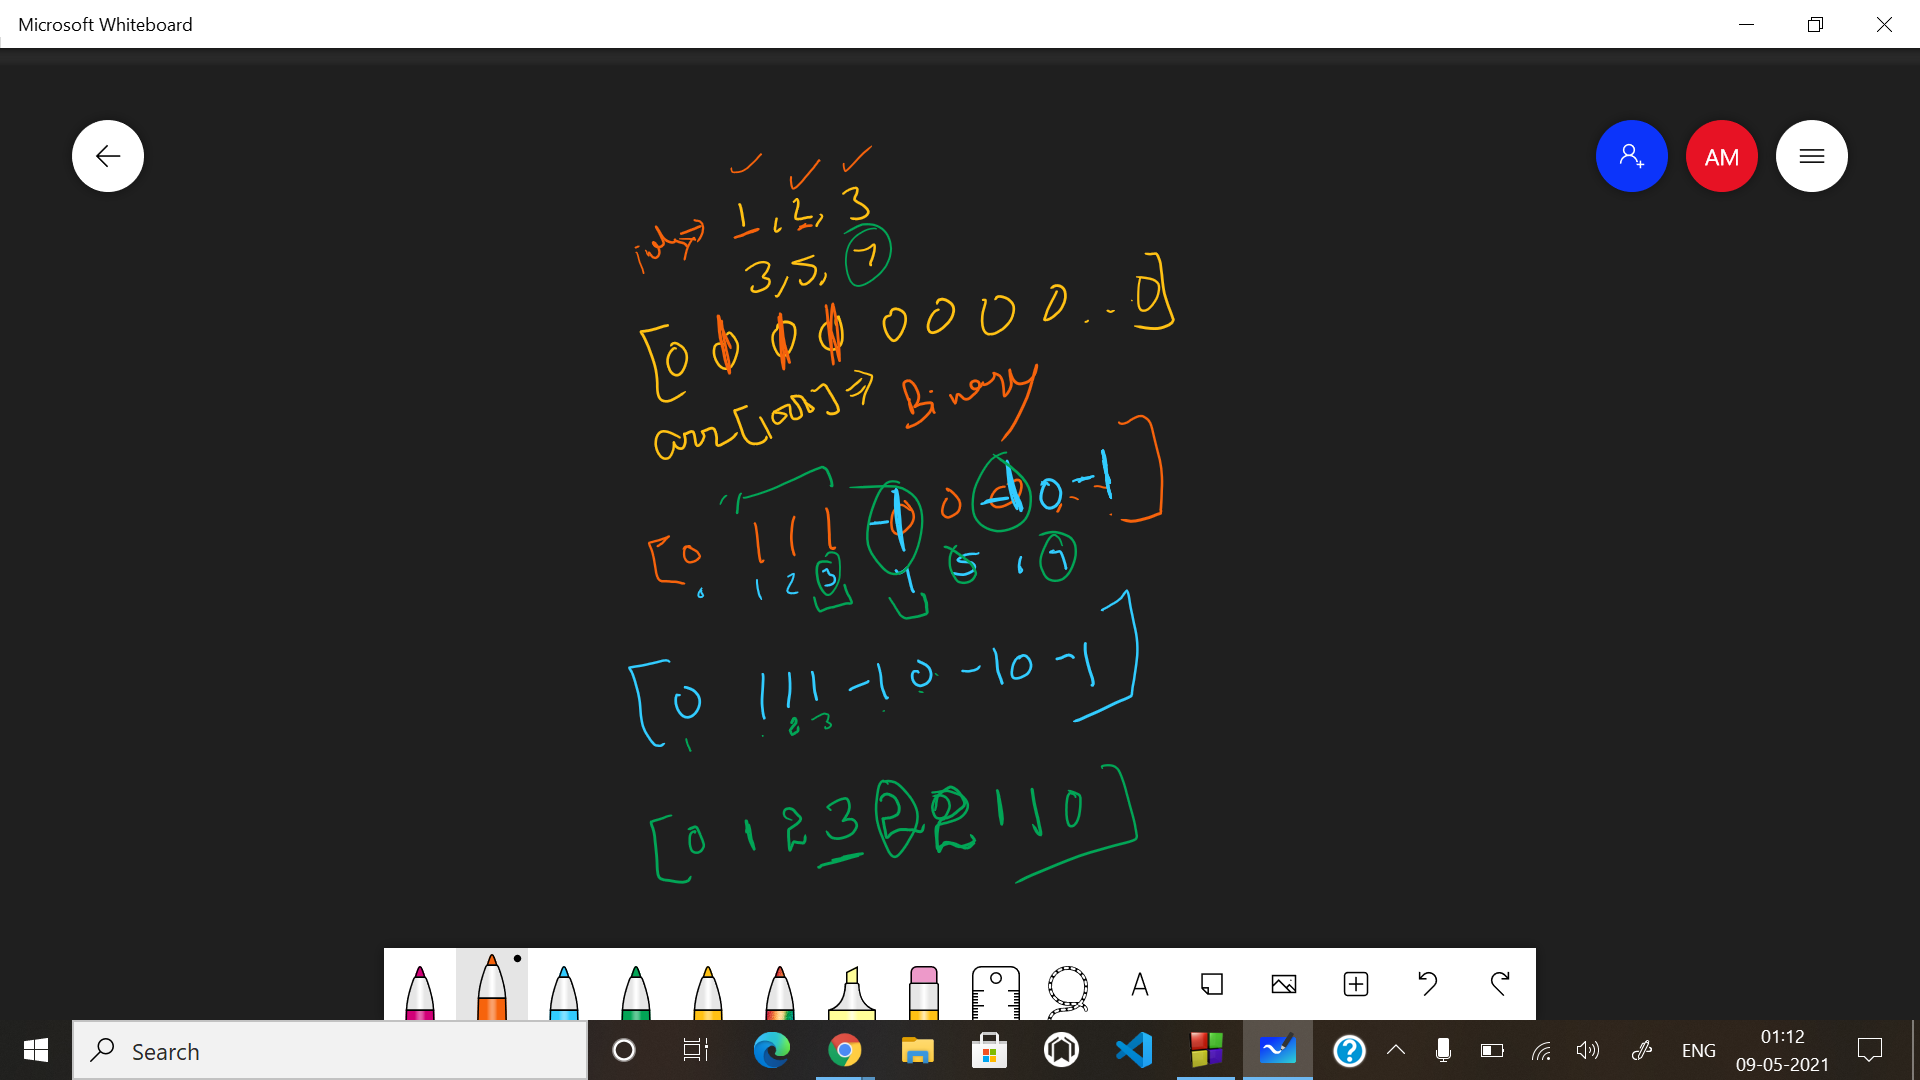 Microsoft Whiteboard
AM
1, 2, 3
3, 5, 7
[0 0 0 0 0 0 0 0 . . . 0]
arr[1000] ⇒ Binary
[0 1 1 1 -1 0 -1 0 -1]
0 1 2 3 5 7
[0 1 1 1 -1 0 -1 0 -1]
1 2 3
[0 1 2 3 2 2 1 1 0]
A
Search
ENG
01:12
09-05-2021